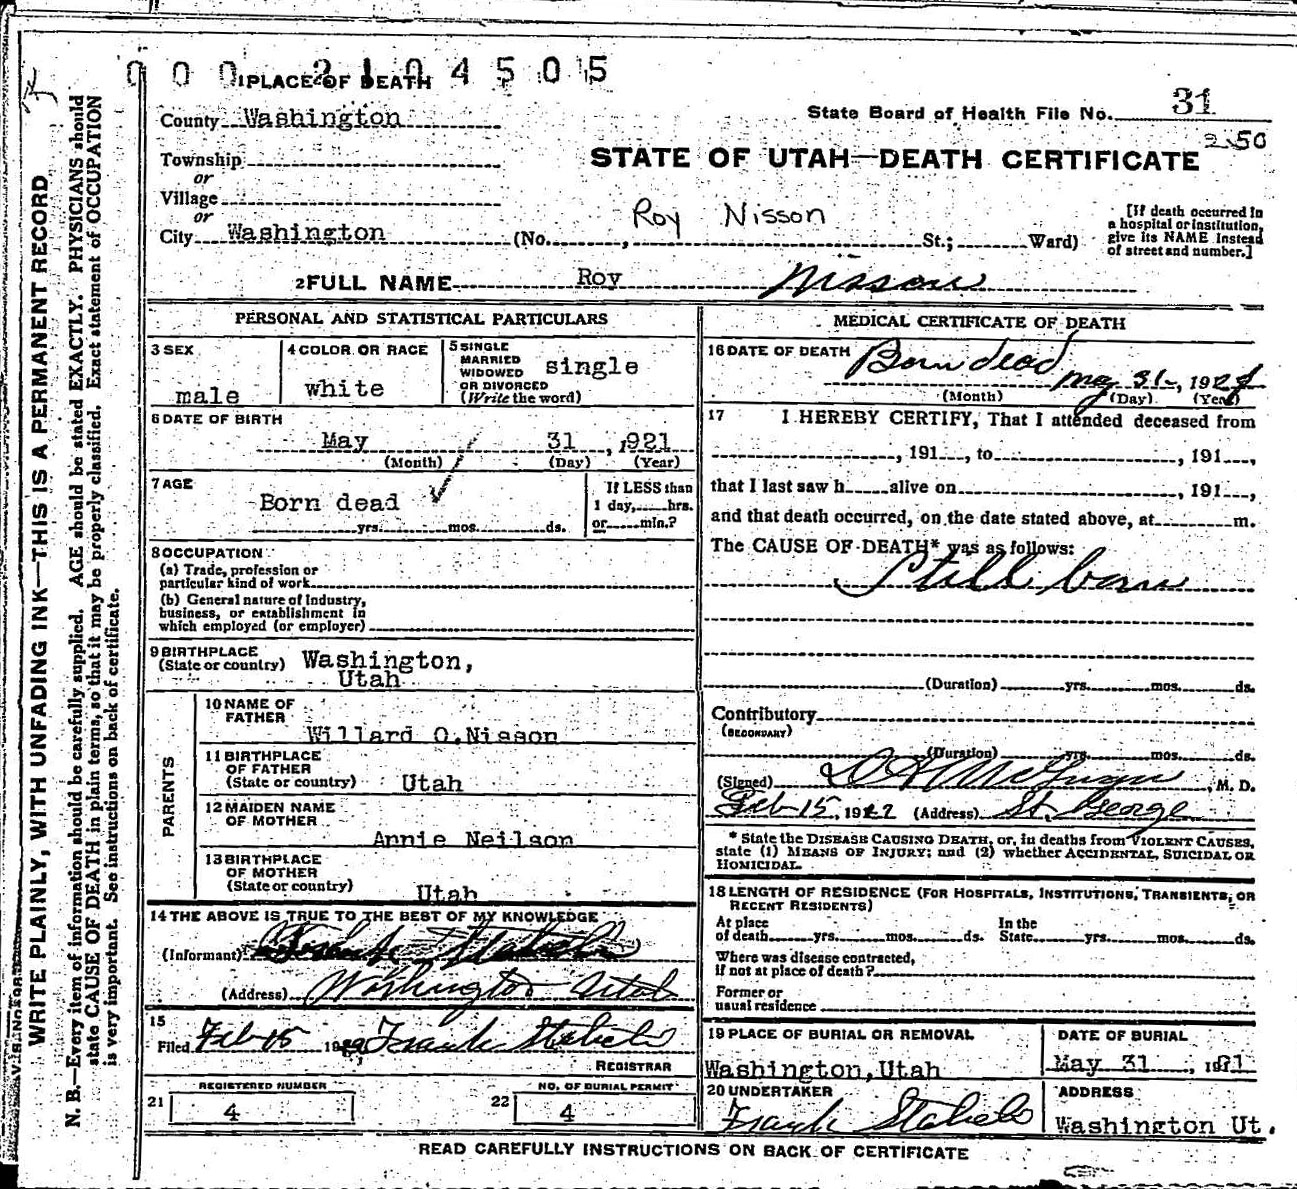 0 0 0 2 1 0 4 5 0 5
1 PLACE OF DEATH
County Washington
State Board of Health File No. 31
250
Township
or
Village
or
City Washington (No. , St.; Ward)
STATE OF UTAH—DEATH CERTIFICATE
Roy Nisson
[If death occurred in
a hospital or institution,
give its NAME instead
of street and number.]
2 FULL NAME Roy Nisson
PERSONAL AND STATISTICAL PARTICULARS
3 SEX
male
4 COLOR OR RACE
white
5 SINGLE
MARRIED
WIDOWED
OR DIVORCED
(Write the word)
single
6 DATE OF BIRTH
May 31, 1921
(Month) (Day) (Year)
7 AGE
Born dead
yrs. mos. ds.
If LESS than
1 day, hrs.
or min.?
8 OCCUPATION
(a) Trade, profession or
particular kind of work
(b) General nature of Industry,
business, or establishment in
which employed (or employer)
9 BIRTHPLACE
(State or country) Washington,
Utah
PARENTS
10 NAME OF
FATHER
Willard O.Nisson
11 BIRTHPLACE
OF FATHER
(State or country) Utah
12 MAIDEN NAME
OF MOTHER
Annie Neilson
13 BIRTHPLACE
OF MOTHER
(State or country)
Utah
14 THE ABOVE IS TRUE TO THE BEST OF MY KNOWLEDGE
(Informant) Frank Staheli
(Address) Washington Utah
15
Filed Feb 15 Frank Staheli
REGISTRAR
REGISTERED NUMBER
21 4
NO. OF BURIAL PERMIT
22 4
MEDICAL CERTIFICATE OF DEATH
16 DATE OF DEATH Born dead
May 31, 1921
(Month) (Day) (Year)
17 I HEREBY CERTIFY, That I attended deceased from
, 191 , to , 191 ,
that I last saw h alive on , 191 ,
and that death occurred, on the date stated above, at m.
The CAUSE OF DEATH* was as follows:
Still born
(Duration) yrs. mos. ds.
Contributory
(SECONDARY)
(Duration) yrs. mos. ds.
(Signed) McGregor, M. D.
Feb 15, 1922 (Address) St. George
* State the DISEASE CAUSING DEATH, or, in deaths from VIOLENT CAUSES,
state (1) MEANS OF INJURY; and (2) whether ACCIDENTAL, SUICIDAL OR
HOMICIDAL.
18 LENGTH OF RESIDENCE (FOR HOSPITALS, INSTITUTIONS, TRANSIENTS, OR
RECENT RESIDENTS)
At place In the
of death yrs. mos. ds. State yrs. mos. ds.
Where was disease contracted,
if not at place of death?
Former or
usual residence
19 PLACE OF BURIAL OR REMOVAL
Washington, Utah
DATE OF BURIAL
May 31, 1921
20 UNDERTAKER
Frank Staheli
ADDRESS
Washington Ut.
READ CAREFULLY INSTRUCTIONS ON BACK OF CERTIFICATE
WRITE PLAINLY, WITH UNFADING INK—THIS IS A PERMANENT RECORD
N. B.—Every item of information should be carefully supplied. AGE should be stated EXACTLY. PHYSICIANS should
state CAUSE OF DEATH in plain terms, so that it may be properly classified. Exact statement of OCCUPATION
is very important. See instructions on back of certificate.